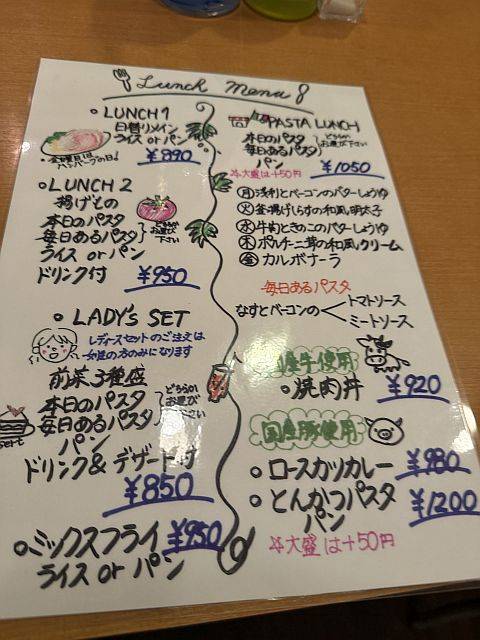 Lunch Menu
○ LUNCH 1
日替りメイン
ライス or パン
金曜日は
ハンバーグの日!
¥890
○ LUNCH 2
揚げもの
本日のパスタ
毎日あるパスタ
お選び
下さい
ライス or パン
ドリンク付
¥950
○ LADY's SET
レディースセットのご注文は
女性の方のみになります
前菜3種盛
本日のパスタ
毎日あるパスタ
どちらか
お選び
下さい
パン
ドリンク & デザート付
¥850
○ ミックスフライ
¥950
ライス or パン
PASTA LUNCH
本日のパスタ
毎日あるパスタ
どちらか
お選び下さい
パン
☆大盛は+50円
¥1050
月 浅利とベーコンのバターしょうゆ
火 釜揚げしらすの和風明太子
水 牛肉ときのこのバターしょうゆ
木 ポルチーニ茸の和風クリーム
金 カルボナーラ
毎日あるパスタ
なすとベーコンの
トマトソース
ミートソース
国産牛使用
○ 焼肉丼
¥920
国産豚使用
○ ロースカツカレー
¥980
○ とんかつパスタ
パン
¥1200
☆大盛は+50円